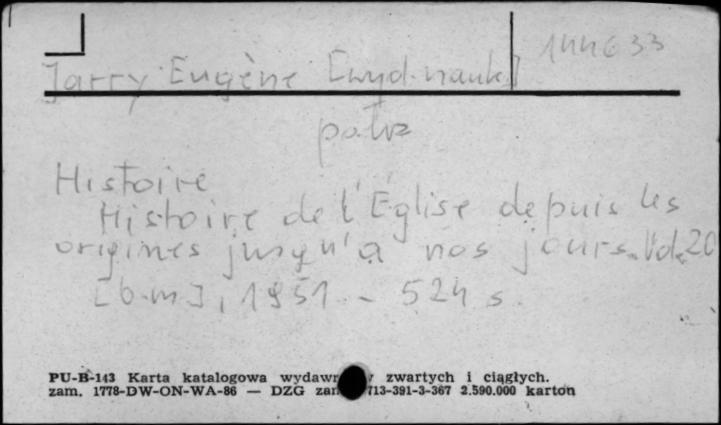 144633
Jarry Eugène [wyd. nauk.]
patrz
Histoire
Histoire de l'Église depuis les
origines jusqu'à nos jours. Vol. 20
[b.m], 1951. - 524 s.
PU-B-143 Karta katalogowa zwartych i ciągłych.
zam. 1778-DW-ON-WA-86 — DZG 713-391-3-367 2.590.000 karton